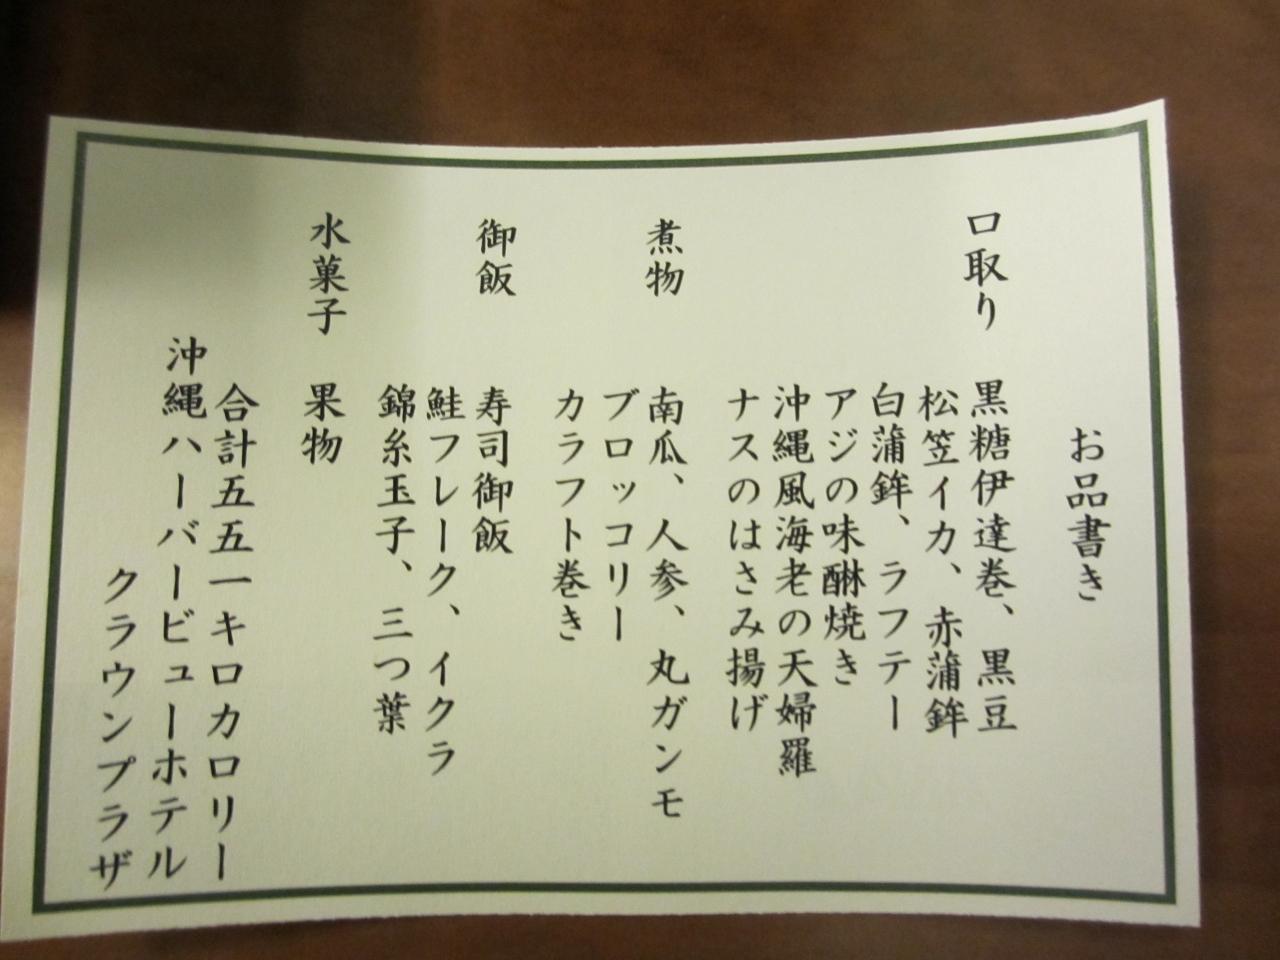 お品書き
口取り 黒糖伊達巻、黒豆
松笠イカ、赤蒲鉾
白蒲鉾、ラフテー
アジの味醂焼き
沖縄風海老の天婦羅
ナスのはさみ揚げ
煮物 南瓜、人参、丸ガンモ
ブロッコリー
カラフト巻き
御飯 寿司御飯
鮭フレーク、イクラ
錦糸玉子、三つ葉
水菓子 果物
合計五五一キロカロリー
沖縄ハーバービューホテル
クラウンプラザ